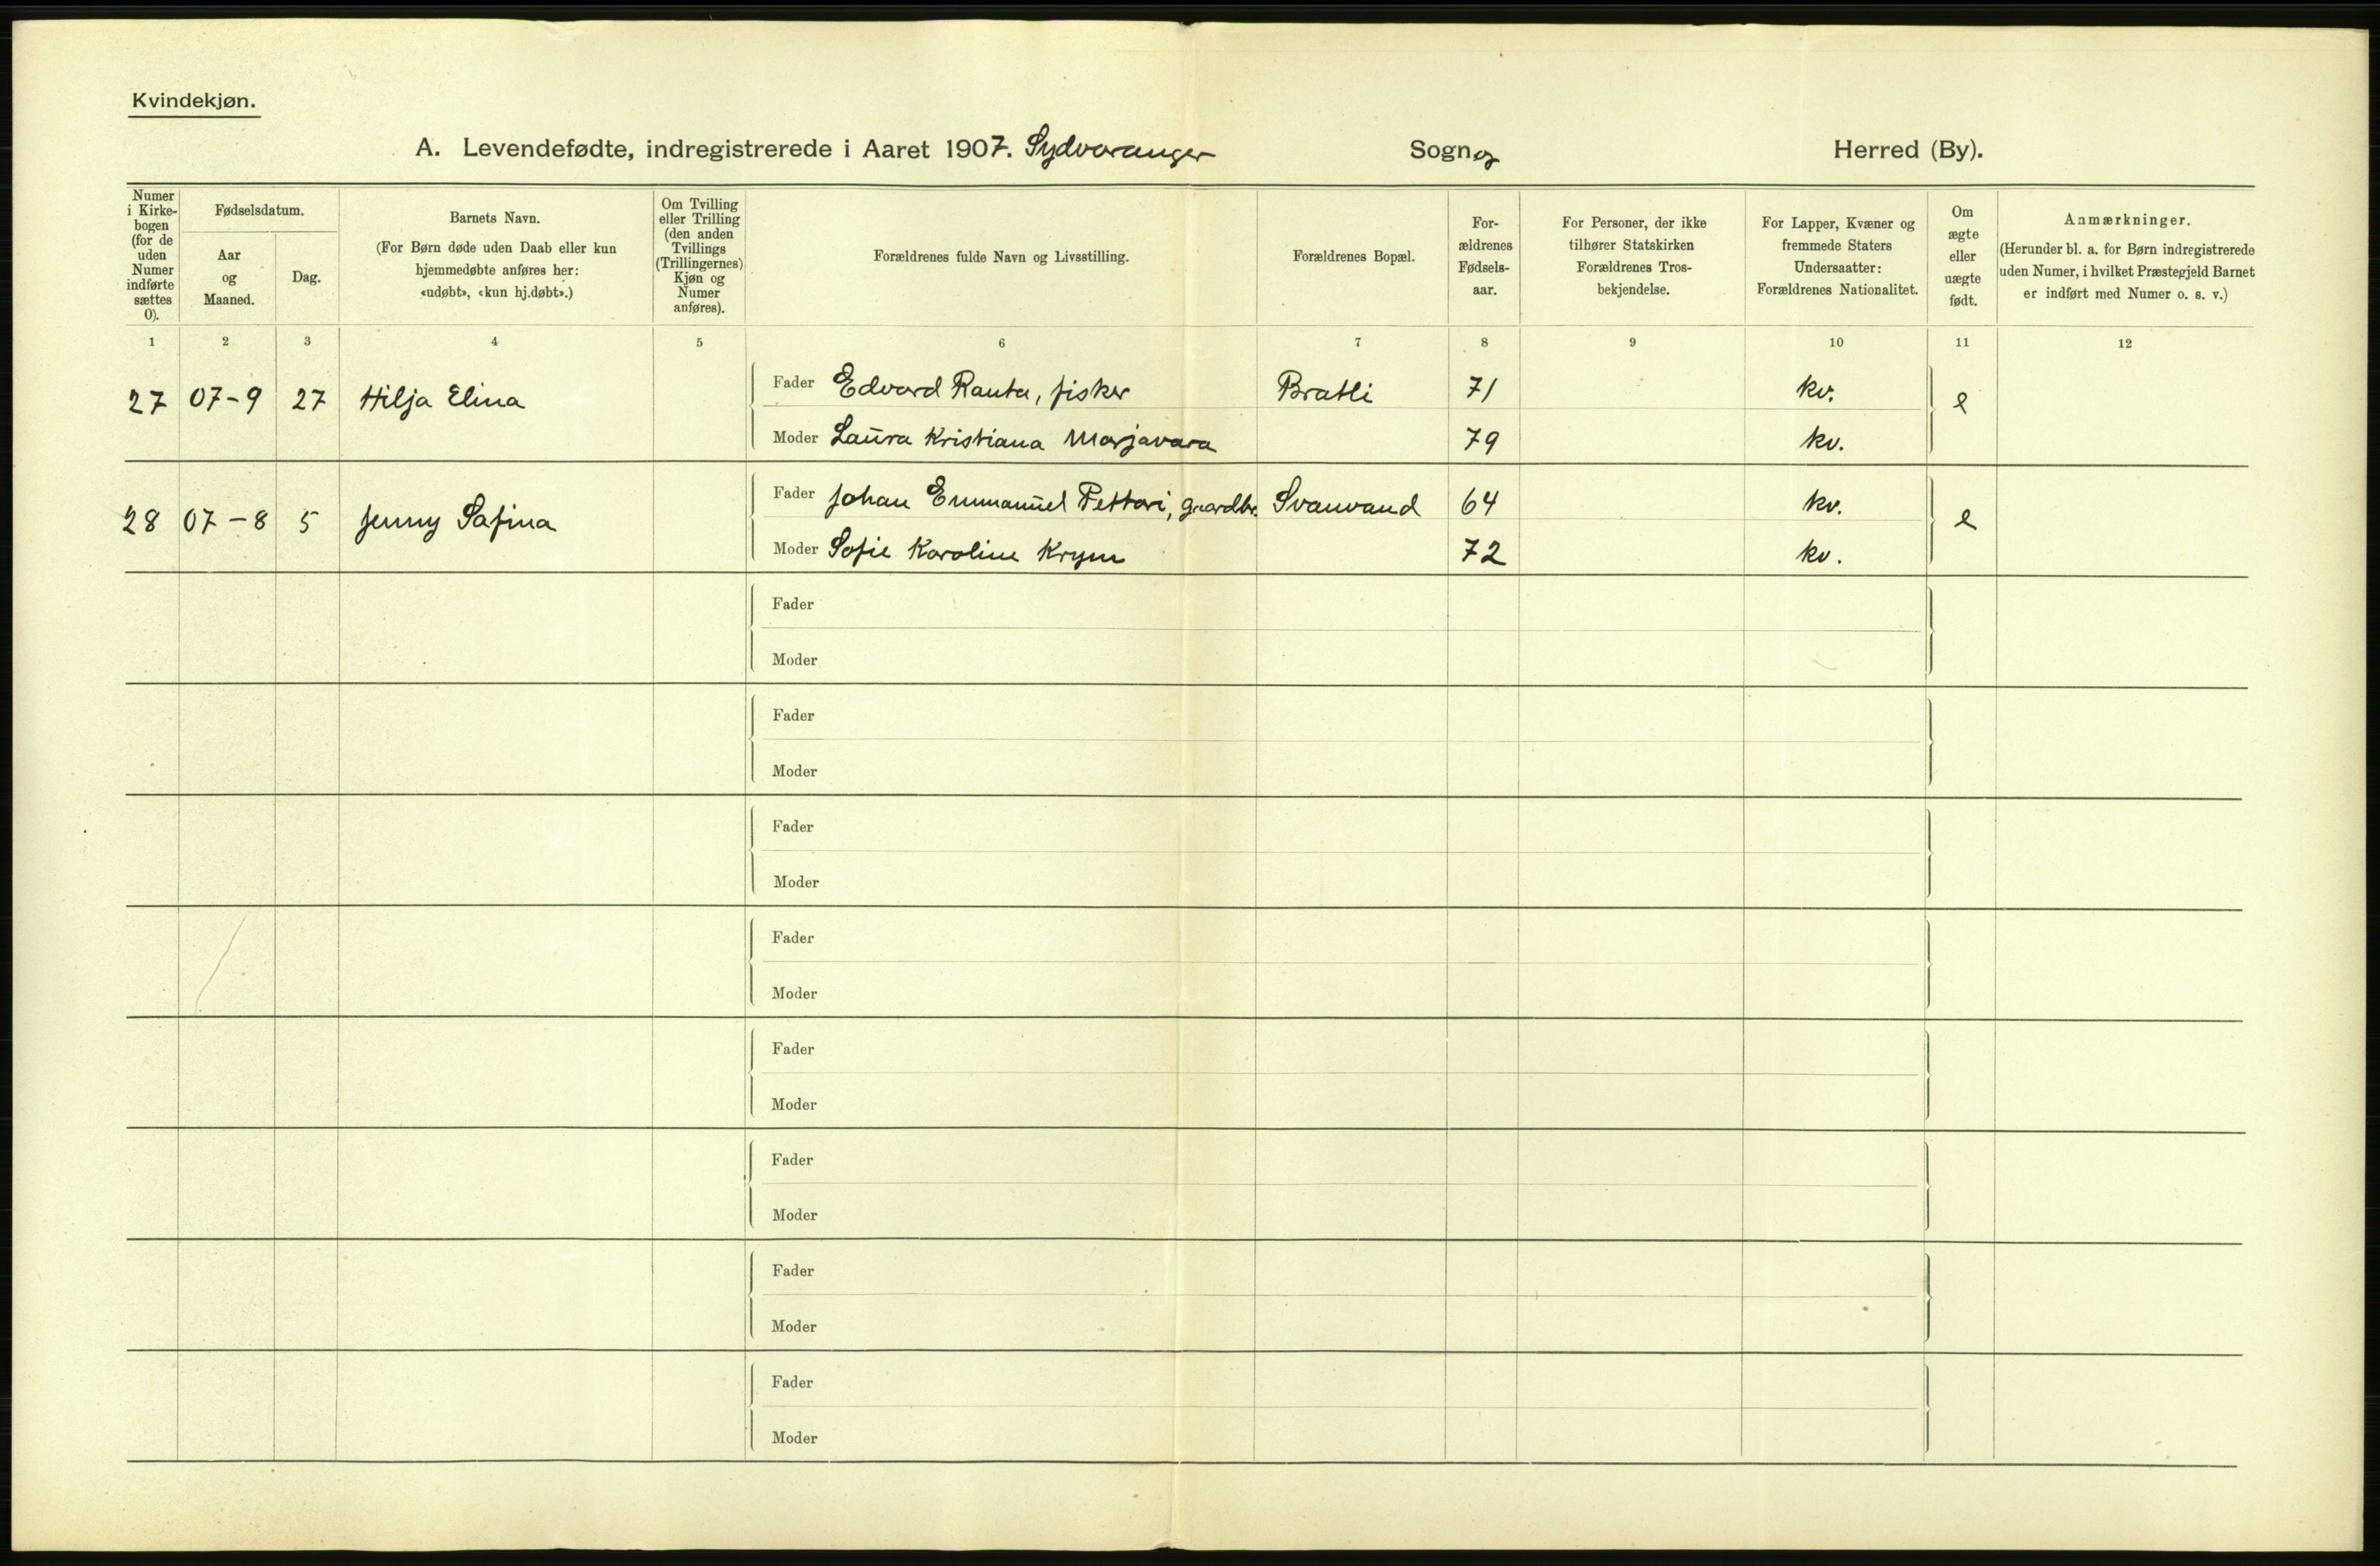 Kvindekjøn.
A. Levendefødte, indregistrerede i Aaret 1907. Sydvaranger Sogn og Herred (By).
Numer i Kirkebogen (for de uden Numer indførte sættes 0).
Fødselsdatum.
Aar og Maaned.
Dag.
Barnets Navn.
(For Børn døde uden Daab eller kun hjemmedøbte anføres her: «udøbt», «kun hj.døbt».)
Om Tvilling eller Trilling (den anden Tvillings (Trillingernes) Kjøn og Numer anføres).
Forældrenes fulde Navn og Livsstilling.
Forældrenes Bopæl.
Forældrenes Fødselsaar.
For Personer, der ikke tilhører Statskirken Forældrenes Trosbekjendelse.
For Lapper, Kvæner og fremmede Staters Undersaatter: Forældrenes Nationalitet.
Om ægte eller uægte født.
Anmærkninger.
(Herunder bl. a. for Børn indregistrerede uden Numer, i hvilket Præstegjeld Barnet er indført med Numer o. s. v.)
1 2 3 4 5 6 7 8 9 10 11 12
27 07-9 27 Hilja Elina Fader Edvard Ranta, fisker Bratli 71 kv. e
Moder Laura Kristiana Marjavara 79 kv.
28 07-8 5 Jenny Safina Fader Johan Emmanuel Pettari, gaardbr. Svanvand 64 kv. e
Moder Sofie Karoline Krym 72 kv.
Fader
Moder
Fader
Moder
Fader
Moder
Fader
Moder
Fader
Moder
Fader
Moder
Fader
Moder
Fader
Moder